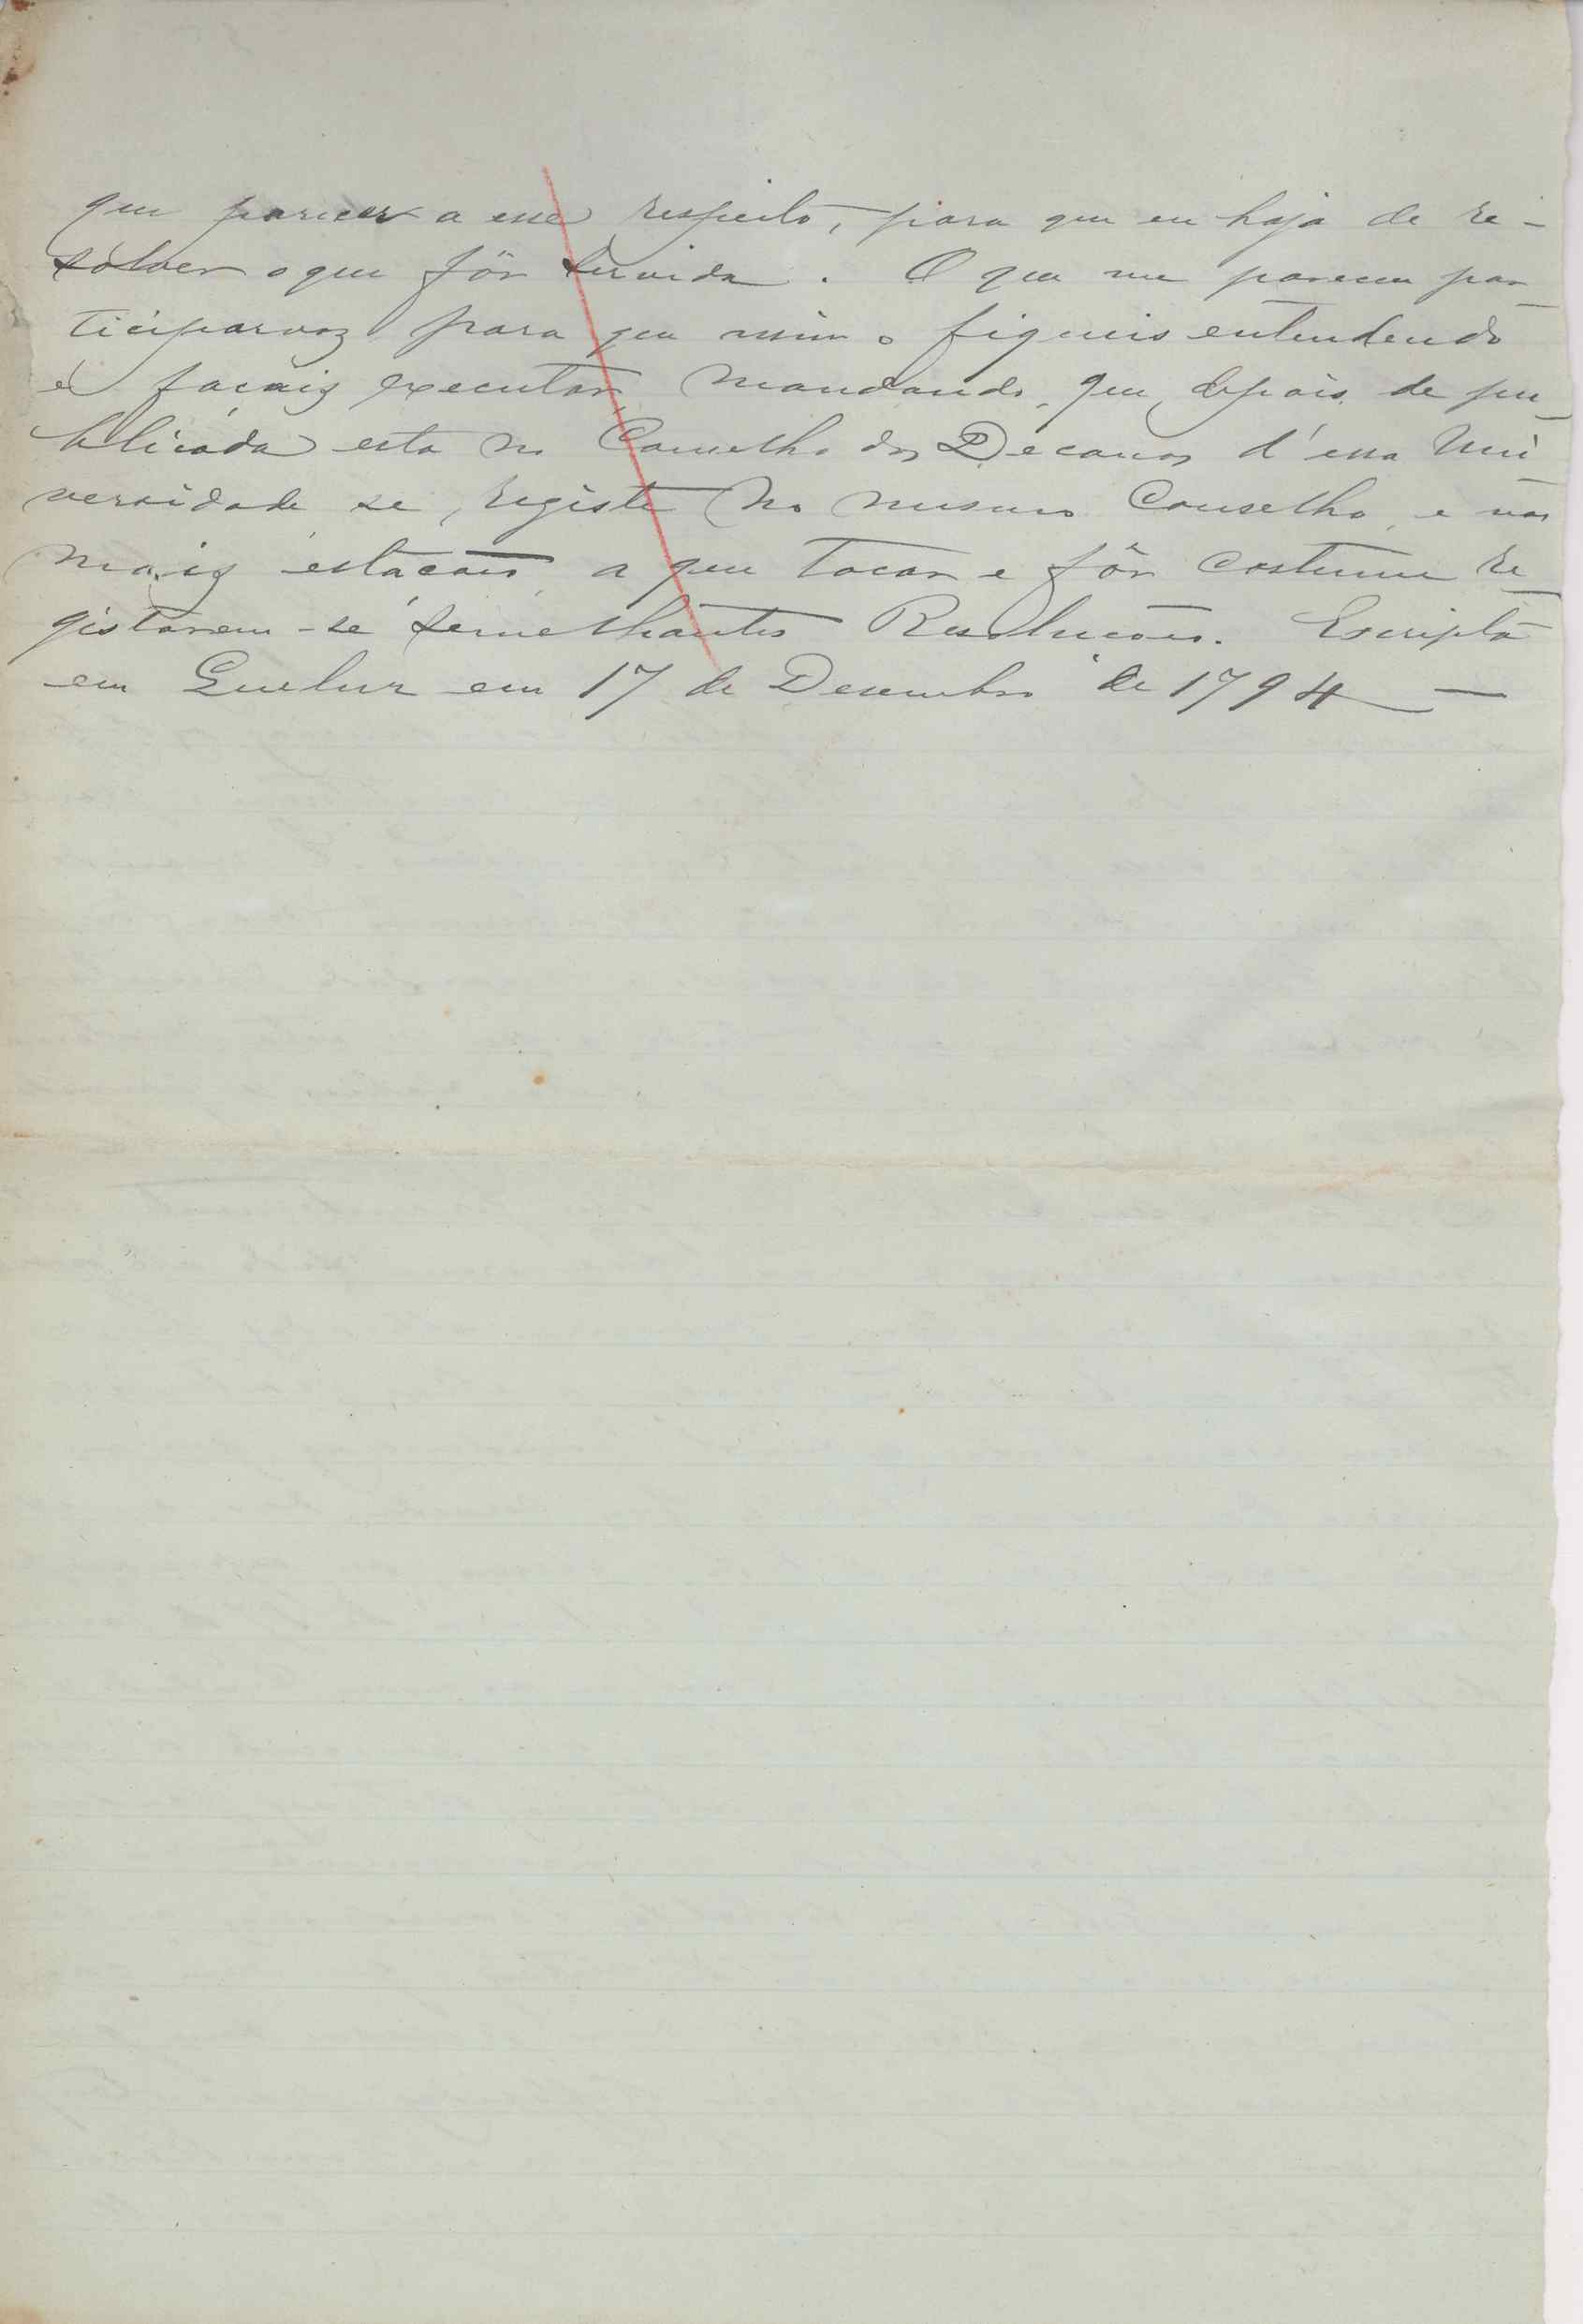 que parecer a esse respeito, para que eu haja de re-
solver o que fôr servida. O que me pareceu par
ticiparvoz para que assim o fiqueis entendendo
e façaiz executar mandando, que, depois de pu
blicada esta no Conselho dos Decanos d'essa Uni
versidade se registe no mesmo Conselho, e nas
maiz estações a que tocar e fôr costume re
gistarem-se semelhantes Resoluções. Escripta
em Queluz em 17 de Desembro de 1794 —